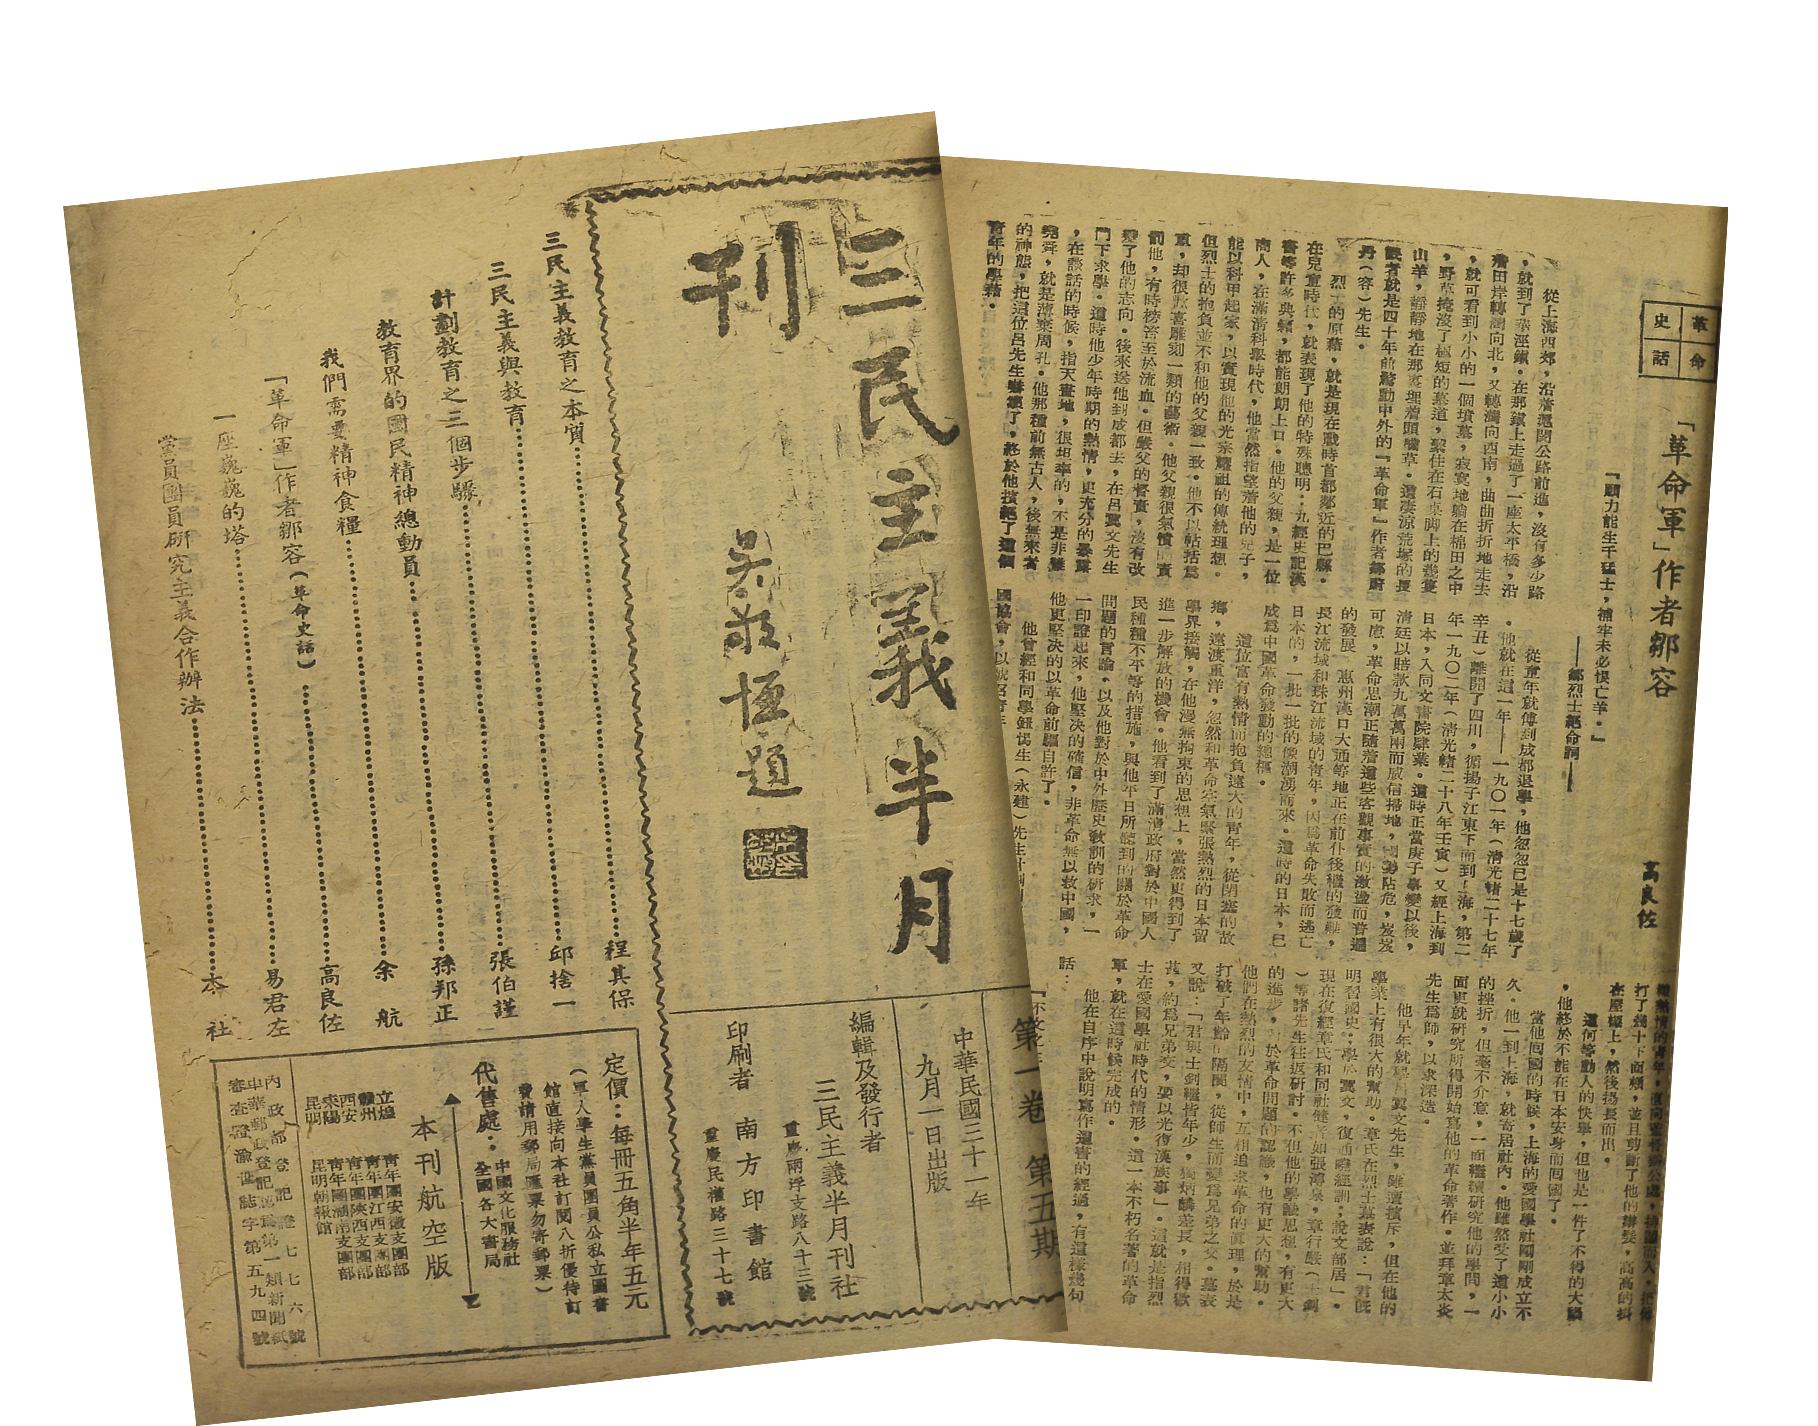 三民主義半月刊
吳敬恆題
第一卷 第五期
中華民國三十一年
九月一日出版
編輯及發行者
三民主義半月刊社
重慶兩浮支路八十三號
印刷者 南方印書館
重慶民權路三十七號
三民主義教育之本質 程其保
三民主義與教育 邱捨一
計劃教育之三個步驟 張伯謹
教育界的國民精神總動員 孫邦正
我們需要精神食糧 余航
「革命軍」作者鄒容(革命史話) 高良佐
一座巍巍的塔 易君左
黨員團員研究主義合作辦法 本社
定價:每冊五角半年五元
(軍人學生黨員團員公私立圖書
館直接向本社訂閱八折優待訂
費請用郵局匯票勿寄郵票)
代售處: 中國文化服務社
全國各大書局
本刊航空版
立煌 青年團安徽支團部
贛州 青年團江西支團部
西安 青年團陝西支團部
耒陽 青年團湖南支團部
昆明 昆明朝報館
內政部登記證七七六號
中華郵政登記認為第一類新聞紙
審查證渝誌字第五九四號
革命史話
「革命軍」作者鄒容
高良佐
「願力能生千猛士,補牢未必恨亡羊。」
——鄒烈士絕命詞——
從上海西郊,沿着滬閔公路前進,沒有多少路
,就到了華涇鎮。在那鎮上走過了一座太平橋,沿
着田岸轉灣向北,又轉灣向西南,曲曲折折地走去
,就可看到小小的一個墳墓,寂寞地躺在棉田之中
,野草掩沒了極短的墓道,繫住在石桌脚上的幾隻
山羊,靜靜地在那裏埋着頭嚼草。這淒涼荒塚的長
眠者就是四十年前驚動中外的「革命軍」作者鄒蔚
丹(容)先生。
烈士的原籍,就是現在戰時首都鄰近的巴縣。
在兒童時代,就表現了他的特殊聰明:九經史記漢
書等許多典籍,都能朗朗上口。他的父親,是一位
商人,在滿清科舉時代,他當然指望着他的兒子,
能以科甲起家,以實現他的光宗耀祖的傳統理想。
但烈士的抱負並不和他的父親一致。他不以帖括爲
重,却很歡喜雕刻一類的藝術。他父親很氣憤 責
罰他,有時榜笞至於流血。但嚴父的督責,沒有改
變了他的志向。後來送他到成都去,在呂翼文先生
門下求學。這時他少年時期的熱情,更充分的暴露
,在談話的時候,指天畫地,很坦率的,不是非難
堯舜,就是薄棄周孔。他那種前無古人,後無來者
的神態,把這位呂先生嚇壞了,終於他擯絕了這個
青年的學籍。
從童年就傳到成都退學,他忽忽已是十七歲了
。他就在這一年——一九〇一年(清光緒二十七年
辛丑)離開了四川,循揚子江東下而到上海,第二
年一九〇二年(清光緒二十八年壬寅)又經上海到
日本,入同文書院肄業。這時正當庚子事變以後,
清廷以賠款九萬萬兩而威信掃地,國勢阽危,岌岌
可慮,革命思潮正隨着這些客觀事實的激盪而普遍
的發展 惠州漢口大通等地正在前仆後繼的發難,
長江流域和珠江流域的靑年,因爲革命失敗而逃亡
日本的,一批一批的像潮湧而來。這時的日本,已
成爲中國革命發動的總樞。
這位富有熱情而抱負遠大的青年,從閉塞的故
鄉,遠渡重洋,忽然和革命空氣緊張熱烈的日本留
學界接觸,在他漫無拘束的思想上,當然更得到了
進一步解放的機會。他看到了滿清政府對於中國人
民種種不平等的措施,與他平日所聽到的關於革命
問題的言論,以及他對於中外歷史教訓的研求,一
一印證起來,他堅决的確信,非革命無以救中國,
他更堅决的以革命前驅自許了。
他曾經和同學鈕惕生(永建)先生計劃
國協會,以號召青年
打了幾十下面頰,並且剪斷了他的辮髮,高高的掛
在屋樑上,然後揚長而出。
這何等動人的快舉,但也是一件了不得的大禍
,他終於不能在日本安身而囘國了。
當他囘國的時候,上海的愛國學社剛剛成立不
久。他一到上海,就寄居社內。他雖然受了這小小
的挫折,但毫不介意,一面繼續研究他的學問,一
面更就研究所得開始寫他的革命著作。並拜章太炎
先生爲師,以求深造。
他早年就學呂翼文先生,雖遭擯斥,但在他的
學業上有很大的幫助。章氏在烈士墓表說:「君旣
明習國史,學於翼文,復通曉經訓,說文部居」。
現在復經章氏和同社健者如張溥泉,章行嚴(士釗
)等諸先生往返研討。不但他的學識思想,有更大
的進步。對於革命問題的認識,也有更大的幫助。
他們在熱烈的友情中,互相追求革命的眞理,於是
打破了年齡的隔閡,從師生而變爲兄弟之交。墓表
又說:「君與士釗繼皆年少,獨炳麟差長,相得歡
甚,約爲兄弟交,要以光復漢族事」。這就是指烈
士在愛國學社時代的情形。這一本不朽名著的革命
軍,就在這時候完成的。
他在自序中說明寫作這書的經過,有這樣幾句
話: